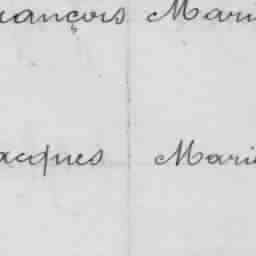 rançois Mari
acques Marie